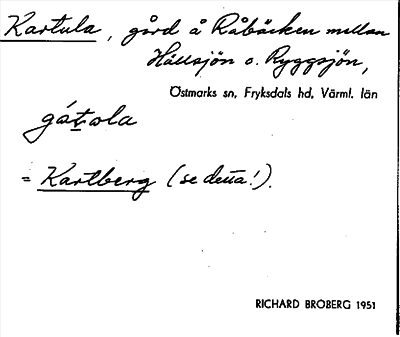 Kartula, gård å Råbäcken mellan
Hällsjön o. Ryggsjön,
Östmarks sn, Fryksdals hd, Värml. län
gáṯola
= Kartberg (se detta!).
RICHARD BROBERG 1951